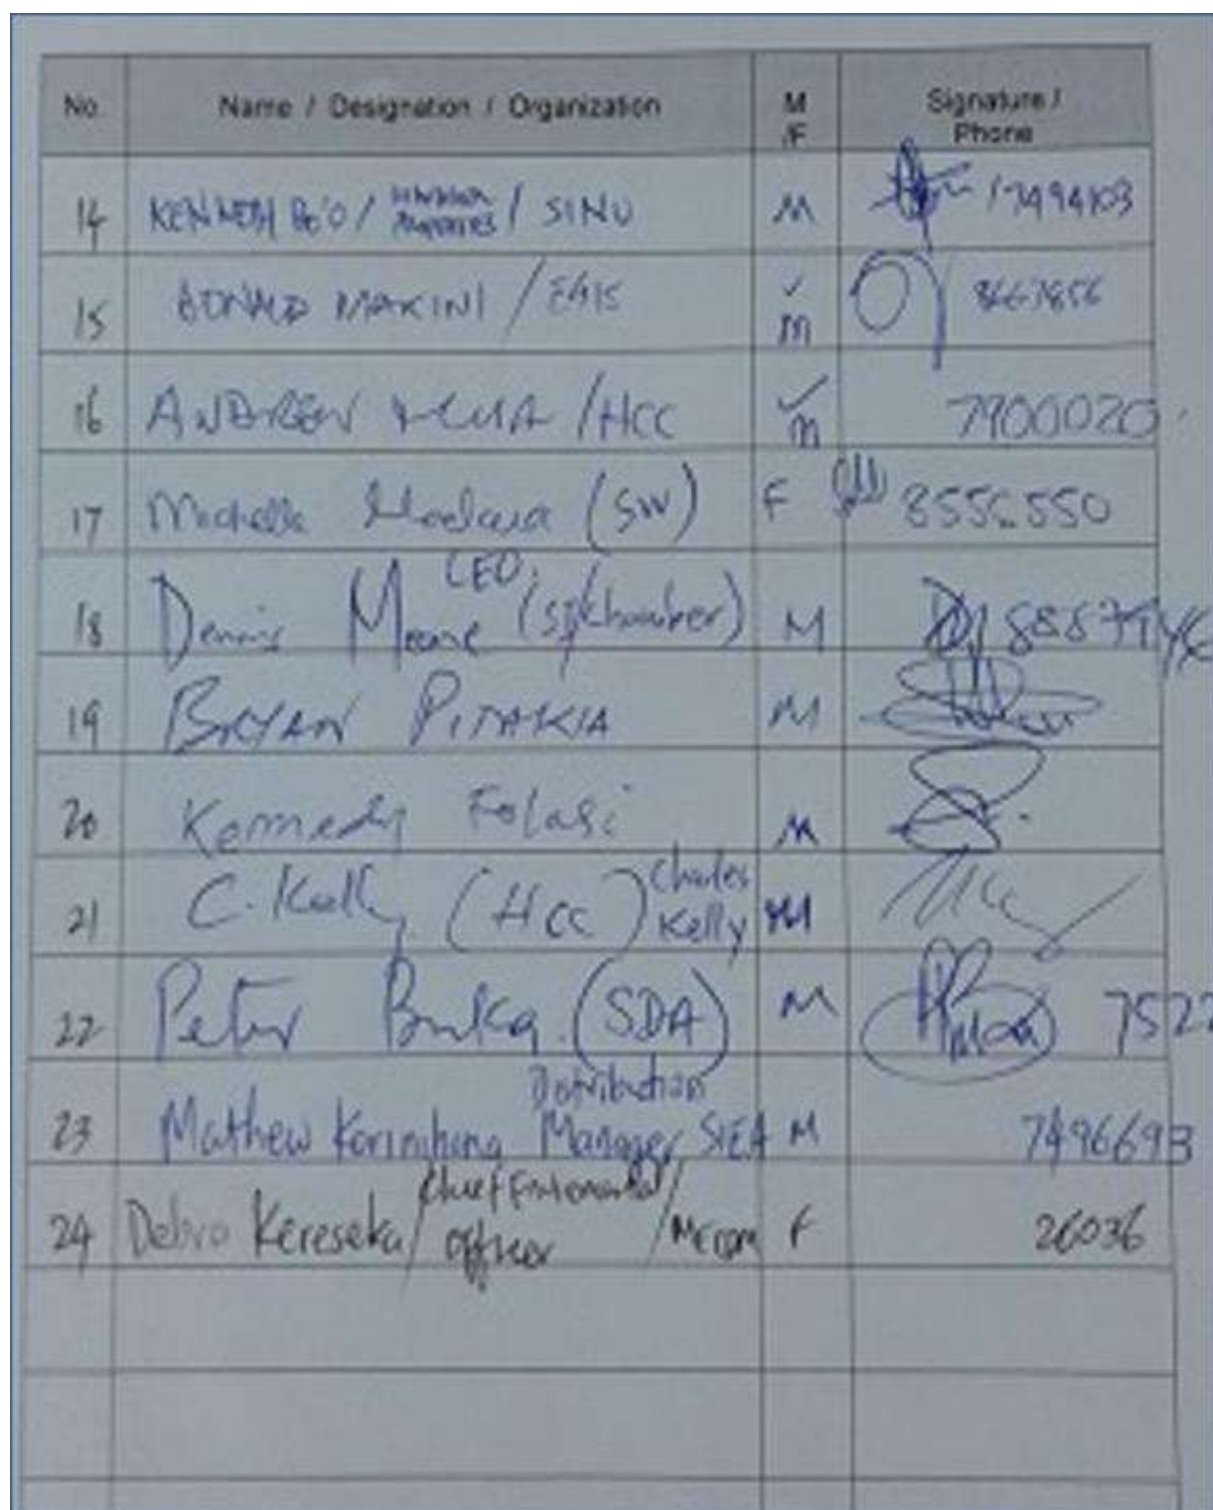 No. Name / Designation / Organization M /F Signature / Phone
14 KENNETH BO'O / / SINU M / 7494103
15 DONALD MAKINI / EGIS M 8667856
16 ANDREW / HCC M 7900020
17 Michelle (SW) F 8556550
18 Dennis Meone CEO, (SI Chamber) M
19 BRYAN PITAKIA M
20 Kennedy Folasi M
21 C. Kelly (HCC) Charles Kelly M
22 Peter (SDA) M 7522
23 Mathew Distribution Manager SIEA M 7496693
24 Debra Kereseka / Chief Officer / F 26036